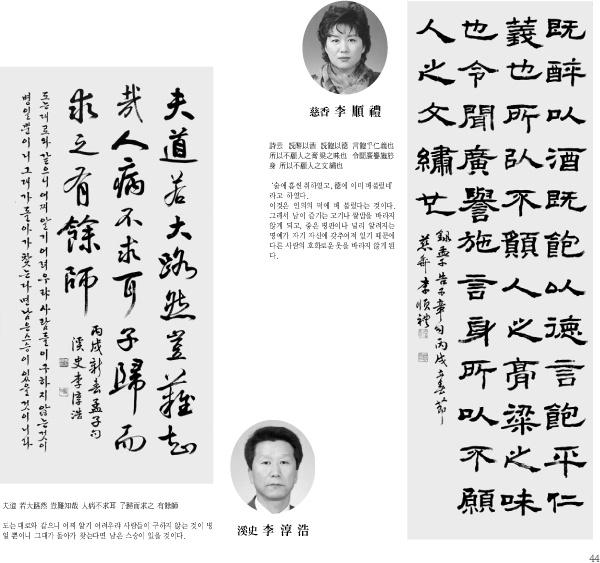 慈香 李順禮
詩云 旣醉以酒 旣飽以德 言飽乎仁義也
所以不願人之膏粱之味也 令聞廣譽施於
身 所以不願人之文繡也
'술에 흠씬 취하였고, 德에 이미 배불렀네'
라고 하였다.
이것은 인의의 덕에 배 불렀다는 것이다.
그래서 남이 즐기는 고기나 쌀밥을 바라지
않게 되고, 좋은 평판이나 널리 알려지는
명예가 자기 자신에 갖추어져 있기 때문에
다른 사람의 호화로운 옷을 바라지 않게 된
다.
既醉以酒既飽以德言飽乎仁
義也所以不願人之膏粱之味
也令聞廣譽施言身所以不願
人之文繡也
錄孟子告子章句 丙戌立春節
慈香 李順禮
夫道若大路然豈難知
哉人病不求耳子歸而
求之有餘師
丙戌新春孟子句
溪史李淳浩
도는 대로와 같으니 어찌 알기 어려우랴 사람들이 구하지 않는 것이
병일 뿐이니 그대가 돌아가 찾는다면 남은 스승이 있을 것이니라
夫道 若大路然 豈難知哉 人病不求耳 子歸而求之 有餘師
도는 대로와 같으니 어찌 알기 어려우랴 사람들이 구하지 않는 것이 병
일 뿐이니 그대가 돌아가 찾는다면 남은 스승이 있을 것이다.
溪史 李淳浩
44